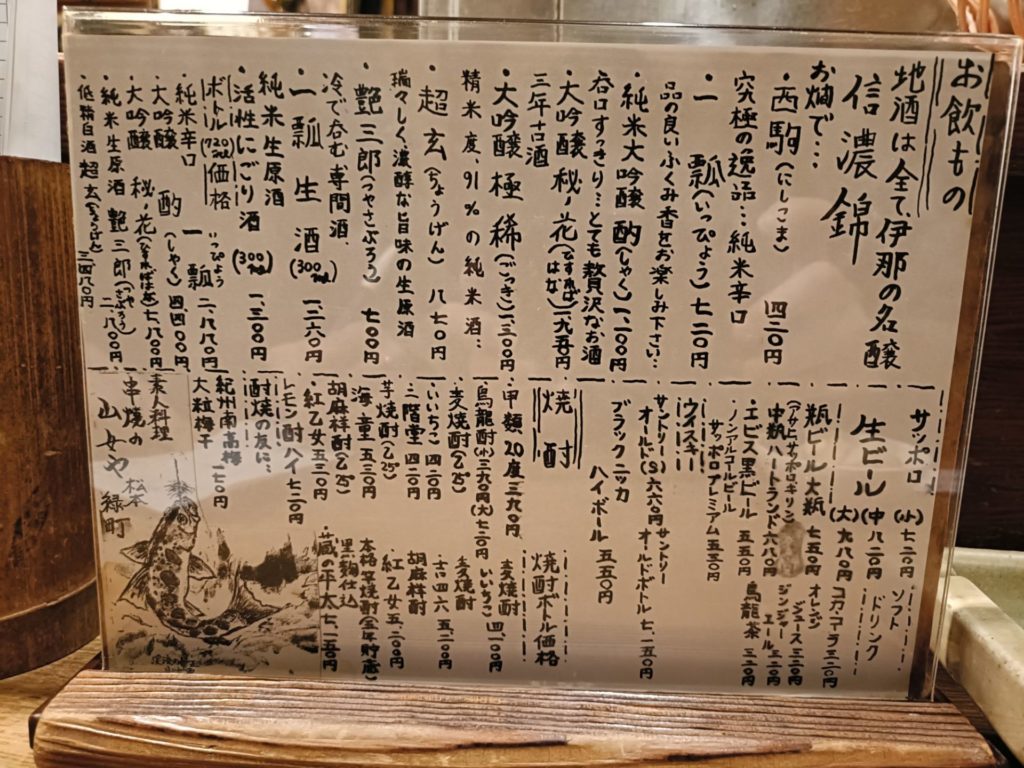 お飲もの
地酒は全て、伊那の名醸
信濃錦
お燗で…
・西駒(にしこま) 四二〇円
究極の逸品…純米辛口
・一瓢(いっぴょう) 七二〇円
品の良いふくみ香をお楽しみ下さい…
・純米大吟醸 酌(しゃく) 一、二〇〇円
呑口すっきり…とても贅沢なお酒
・大吟醸 秘ノ花
三年古酒
・大吟醸 極稀(ごっき) 一、三〇〇円
精米度、91%の純米酒…
・超玄(ちょうげん) 八七〇円
瑞々しく、濃醇な旨味の生原酒
・艶三郎(つやさぶろう) 七〇〇円
冷で呑む専門酒、
・一瓢生酒(300ml) 一、三六〇円
純米生原酒
・活性にごり酒(300ml) 一、三〇〇円
ボトル(720ml)価格
・純米辛口 一瓢 いっぴょう 二、八八〇円
・大吟醸 酌(しゃく) 四、四〇〇円
・大吟醸 秘ノ花
・純米生原酒 艶三郎(つやさぶろう) 二、八〇〇円
・低精白酒 超玄(ちょうげん) 三、四八〇円
サッポロ
生ビール
(小) 七二〇円
(中) 八二〇円
(大) 九八〇円
瓶ビール大瓶 七五〇円
(アサヒ・サッポロ・キリン)
中瓶ハートランド 六八〇円
・エビス黒ビール 五五〇円
・ノンアルコールビール
サッポロプレミアム 五五〇円
ソフト
ドリンク
コカ・コーラ 三二〇円
オレンジ
ジュース 三二〇円
ジンジャー
エール 三二〇円
烏龍茶 三二〇円
ウイスキー
サントリー
オールド(S) 六六〇円
サントリー
オールドボトル 七、一五〇円
ブラックニッカ
ハイボール 五五〇円
焼酎
・甲類20度 三九〇円
烏龍酎(小) 三九〇円(大) 七二〇円
麦焼酎(乙25°)
・いいちこ 四二〇円
・二階堂 四二〇円
芋焼酎(乙25°)
・海童 五三〇円
胡麻祥酎(乙25°)
・紅乙女 五三〇円
レモン酎ハイ 七二〇円
焼酎ボトル価格
・麦焼酎
いいちこ 四、一〇〇円
・麦焼酎
吉四六 五、二〇〇円
胡麻祥酎
・紅乙女 五、二〇〇円
本格芋焼酎(全年貯蔵)
黒麹仕込
・蔵の平太 七、一五〇円
酎焼の友に…
紀州南高梅
大粒梅干 一七〇円
素人料理
串焼の
松本
山女や 緑町